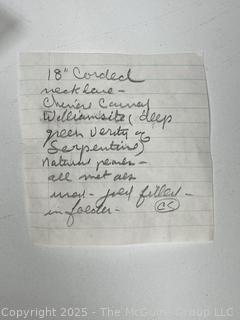 18" Corded
necklace -
Chinese Carved
Williamsite (deep
green verity of
Serpentine)
Natural pearls -
all met als
used - gold filled -
in folder -
CS
Copyright 2025 - The McGuire Group